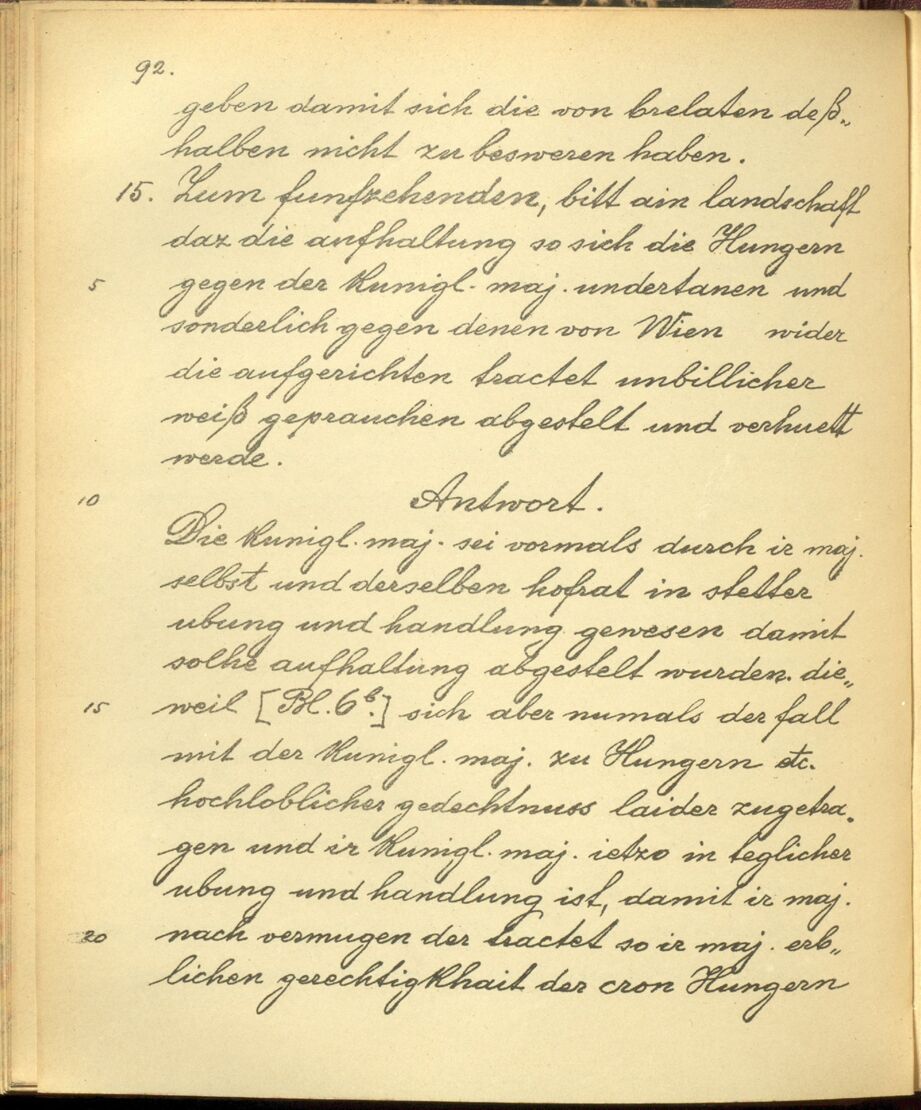 92.
geben damit sich die von brelaten deß„
halben nicht zu besweren haben.
15. Zum funfzehenden, bitt ain landschaft
daz die aufhaltung so sich die Hungern
5 gegen der kunigl. maj. undertanen und
sonderlich gegen denen von Wien wider
die aufgerichten tractet unbillicher
weiß geprauchen abgestelt und verhuett
werde.
10 Antwort.
Die kunigl. maj. sei vormals durch ir maj.
selbst und derselben hofrat in stetter
ubung und handlung gewesen damit
solhe aufhaltung abgestelt wurden. die„
15 weil [Bl. 6b.] sich aber numals der fall
mit der kunigl. maj. zu Hungern etc.
hochloblicher gedechtnuss laider zugetra„
gen und ir kunigl. maj. ietzo in teglicher
ubung und handlung ist, damit ir maj.
20 nach vermugen der tractet so ir maj. erb„
lichen gerechtigkhait der cron Hungern